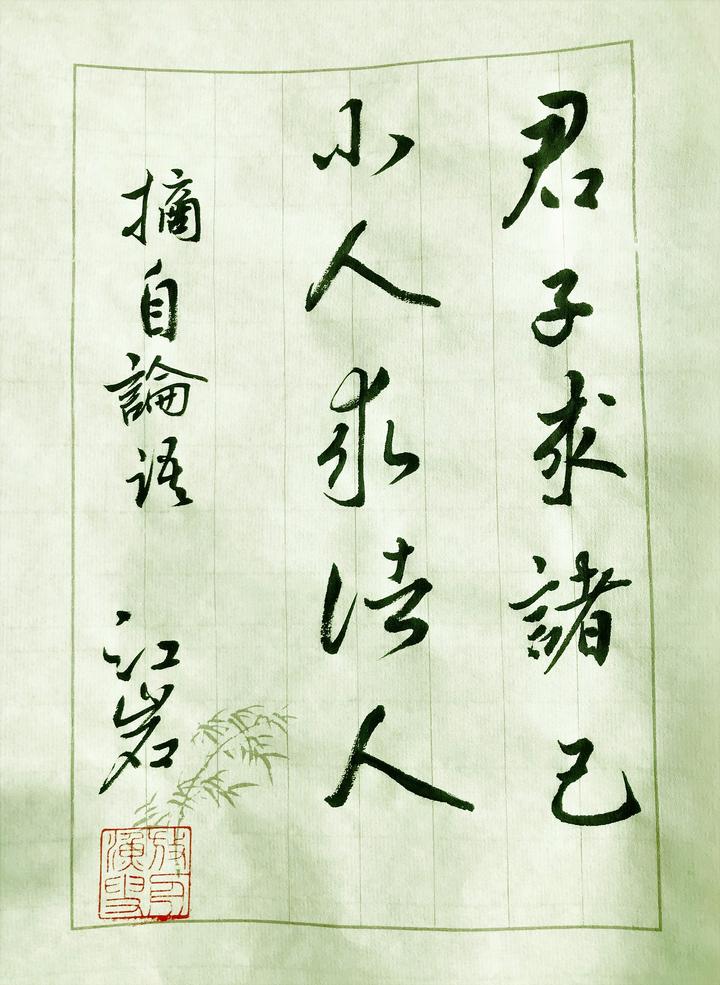 君子求諸己
小人求诸人
摘自論语
江岩